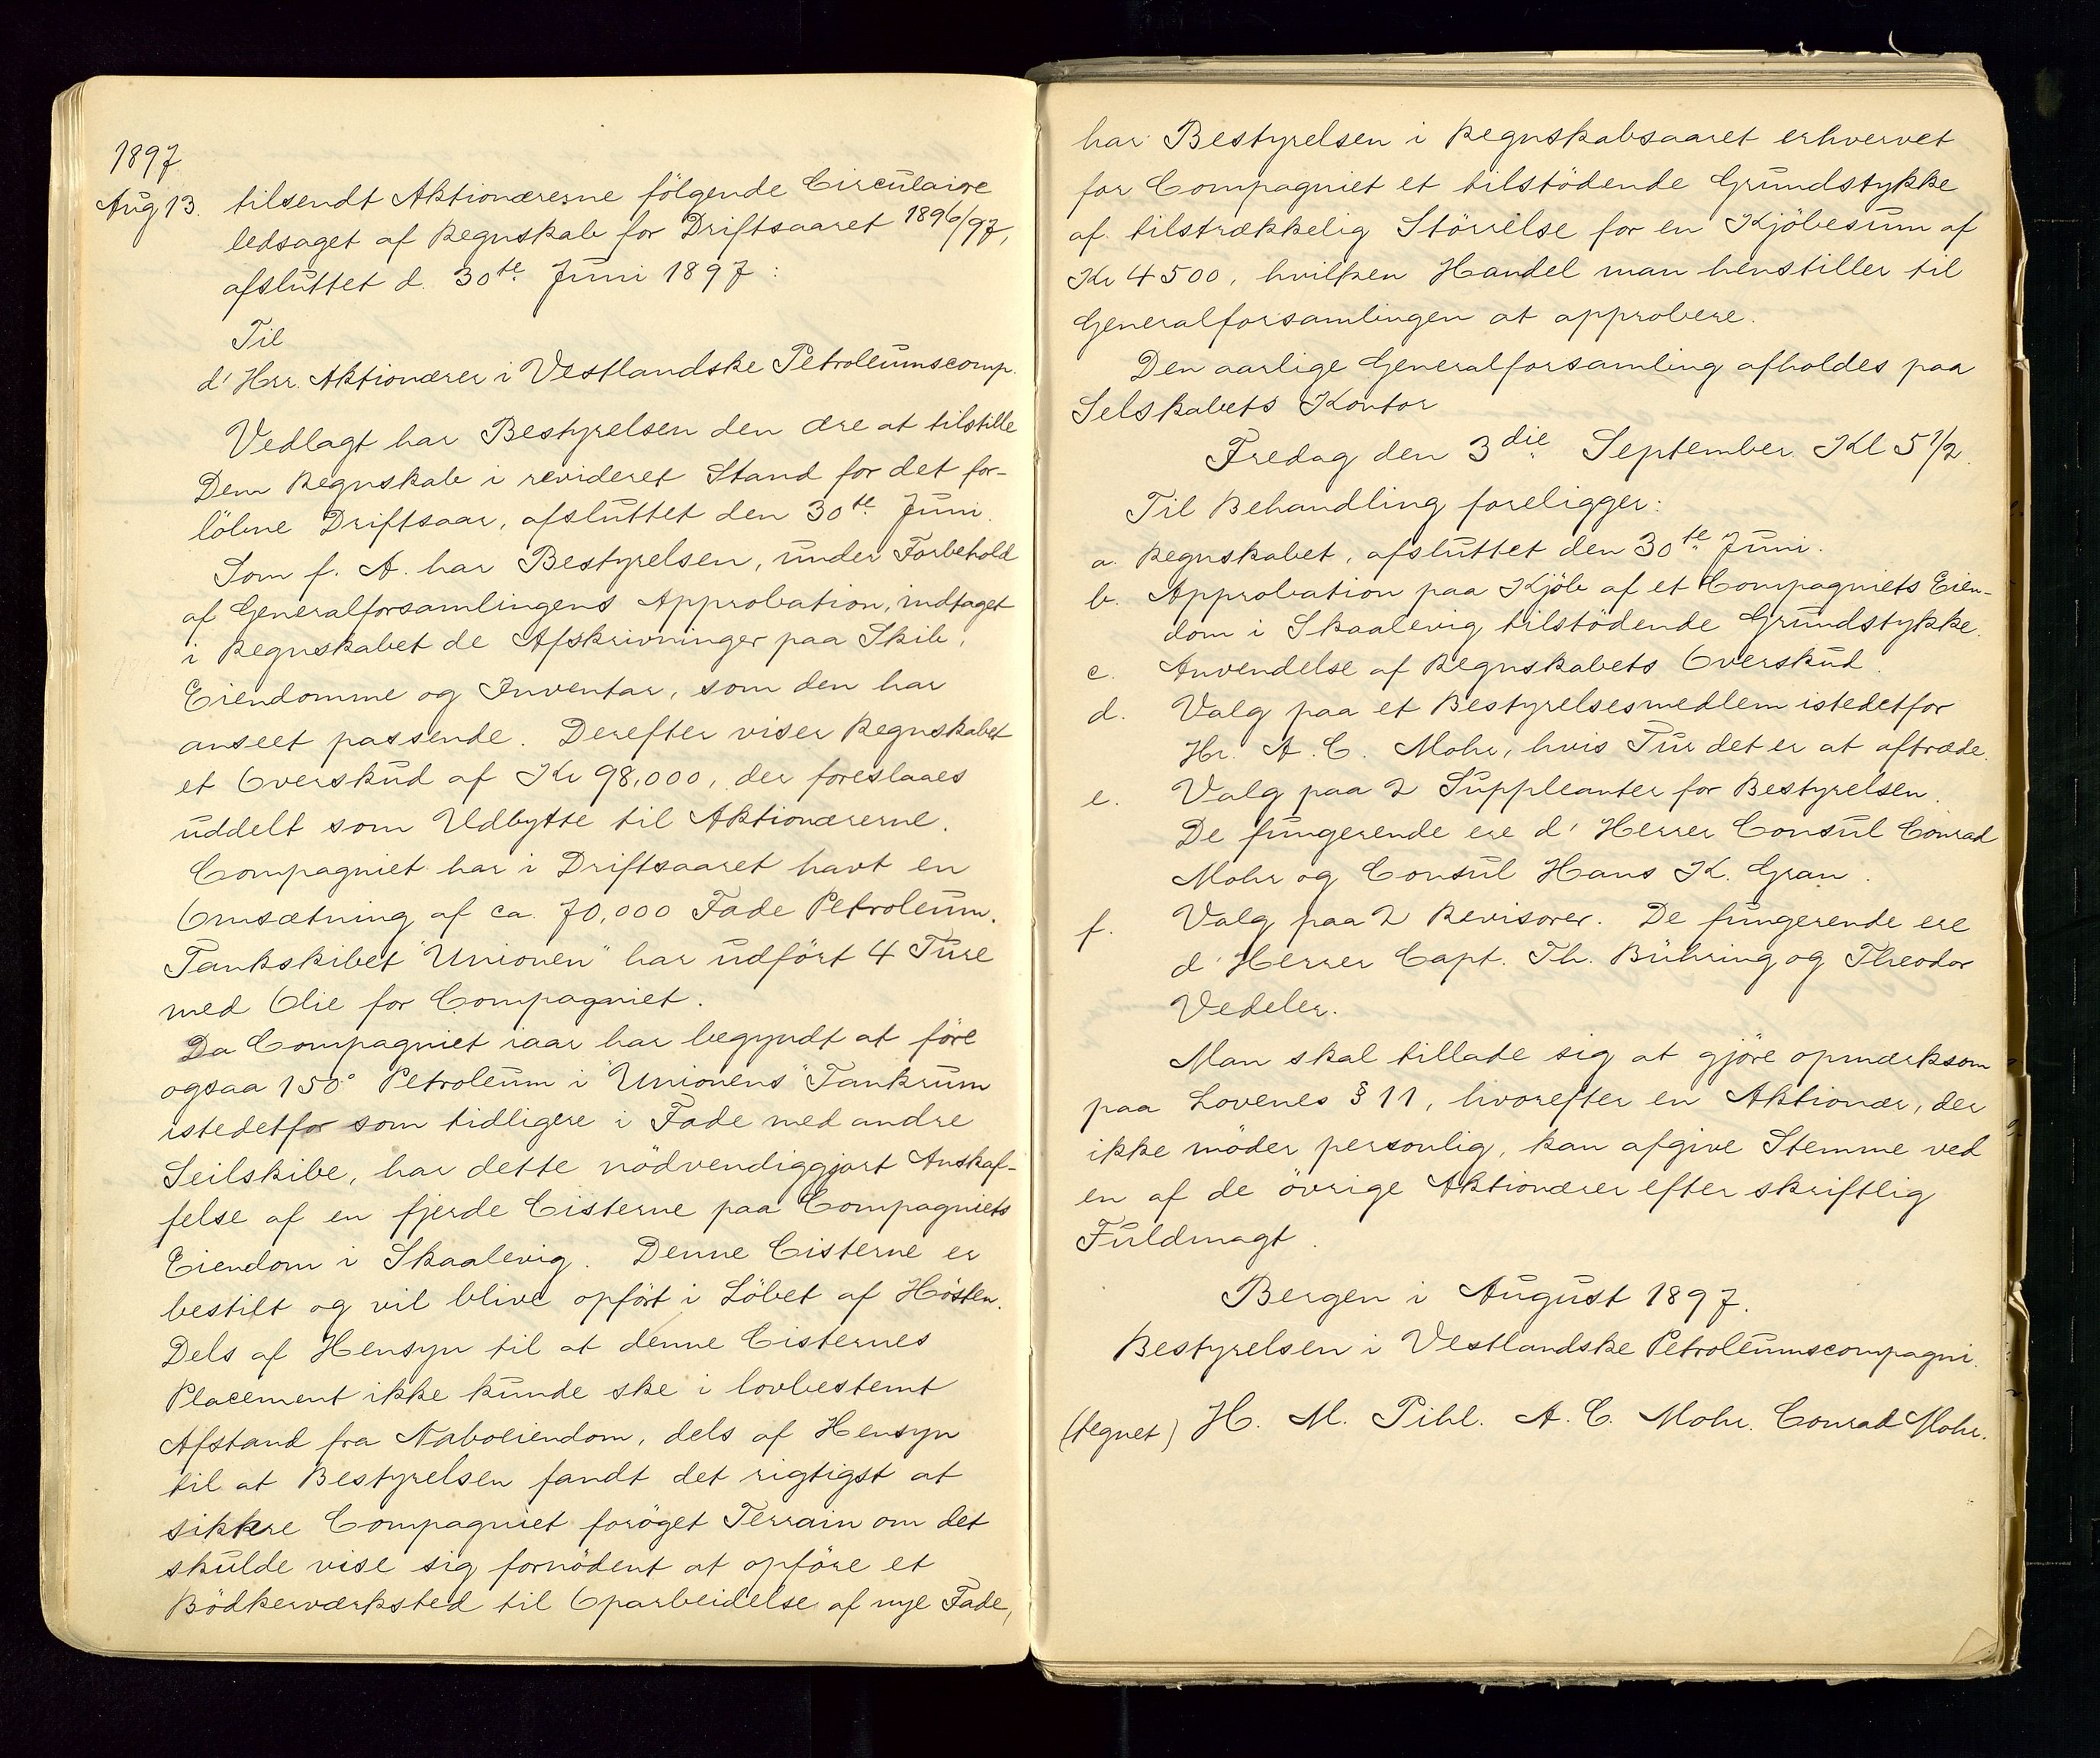 1897
Aug 13. tilsendt Aktionærerne følgende Circulaire
ledsaget af Regnskab for Driftsaaret 1896/97,
afsluttet d. 30te Juni 1897:
Til
d' Hrr. Aktionærer i Vestlandske Petroleumscomp.
Vedlagt har Bestyrelsen den Ære at tilstille
Dem Regnskab i revideret Stand for det for-
løbne Driftsaar, afsluttet den 30te Juni.
Som f. A. har Bestyrelsen, under Forbehold
af Generalforsamlingens Approbation, indtaget
i Regnskabet de Afskrivninger paa Skib,
Eiendomme og Inventar, som den har
anseet passende. Derefter viser Regnskabet
et Overskud af Kr 98,000, der foreslaaes
uddelt som Udbytte til Aktionærerne.
Compagniet har i Driftsaaret havt en
Omsætning af ca. 70,000 Fade Petroleum.
Tankskibet "Unionen" har udført 4 Ture
med Olie for Compagniet.
Da Compagniet iaar har begyndt at føre
ogsaa 150° Petroleum i "Unionens" Tankrum
istedetfor som tidligere i Fade med andre
Seilskibe, har dette nödvendiggjort Anskaf-
felse af en fjerde Cisterne paa Compagniets
Eiendom i Skaalevig. Denne Cisterne er
bestilt og vil blive opført i Löbet af Hösten.
Dels af Hensyn til at denne Cisternes
Placement ikke kunde ske i lovbestemt
Afstand fra Naboeiendom, dels af Hensyn
til at Bestyrelsen fandt det rigtigst at
sikkre Compagniet forøget Terrain om det
skulde vise sig fornødent at opføre et
Bödkerværksted til Oparbeidelse af nye Fade,
har Bestyrelsen i Regnskabsaaret erhvervet
for Compagniet et tilstödende Grundstykke
af tilstrækkelig Störrelse for en Kjöbesum af
Kr 4500, hvilken Handel man henstiller til
Generalforsamlingen at approbere.
Den aarlige Generalforsamling afholdes paa
Selskabets Kontor
Fredag den 3die September Kl 5 1/2.
Til Behandling foreligger:
a. Regnskabet, afsluttet den 30te Juni.
b. Approbation paa Kjöb af et Compagniets Eien-
dom i Skaalevig tilstödende Grundstykke.
c. Anvendelse af Regnskabets Overskud.
d. Valg paa et Bestyrelsesmedlem istedetfor
Hr. A. C. Mohr, hvis Tur det er at aftræde.
e. Valg paa 2 Suppleanter for Bestyrelsen.
De fungerende ere d' Herrer Consul Conrad
Mohr og Consul Hans K. Gran.
f. Valg paa 2 Revisorer. De fungerende ere
d' Herrer Capt. Th. Bühring og Theodor
Vedeler.
Man skal tillade sig at gjöre opmærksom
paa Lovenes § 11, hvorefter en Aktionær, der
ikke möder personlig, kan afgive Stemme ved
en af de övrige Aktionærer efter skriftlig
Fuldmagt.
Bergen i August 1897.
Bestyrelsen i Vestlandske Petroleumscompagni.
(tegnet) H. M. Pihl. A. C. Mohr. Conrad Mohr.